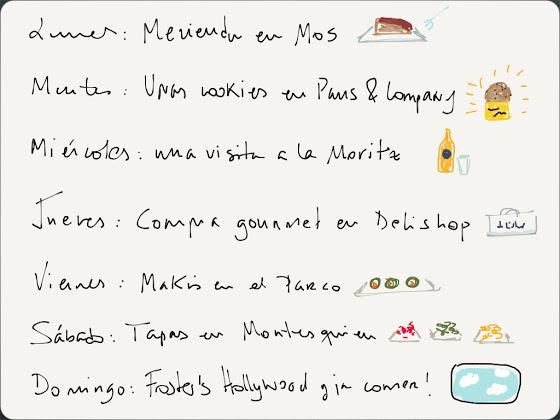 Lunes: Merienda en Mos
Martes: Unas cookies en Paris & Company
Miércoles: una visita a la Moritz
Jueves: Compra gourmet en Delishop
Viernes: Makis en el Parco
Sábado: Tapas en Montesquieu
Domingo: Foster's Hollywood y ja comer!